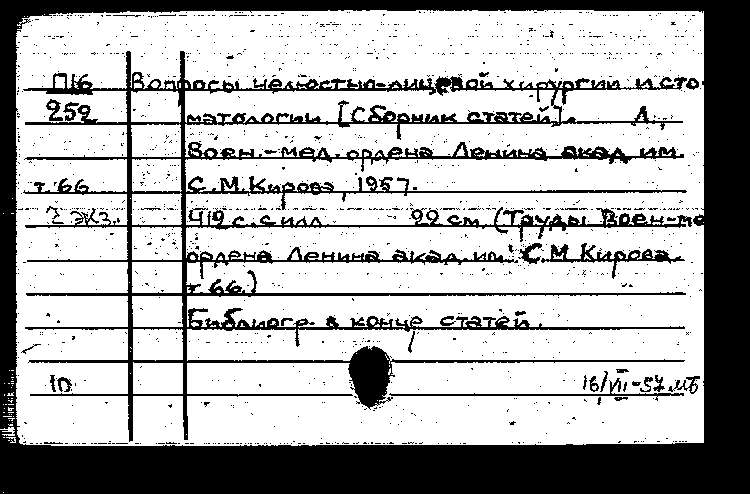 П16 Вопросы челюстно-лицевой хирургии и сто-
252 матологии. [Сборник статей]. Л.,
Воен.-мед. ордена Ленина акад. им.
т. 66 С. М. Кирова, 1957.
2 экз. 412 с. с илл. 22 см. (Труды Воен-ме
ордена Ленина акад. им. С. М. Кирова.
т. 66.)
Библиогр. в конце статей.
10 16/VII-57 мб